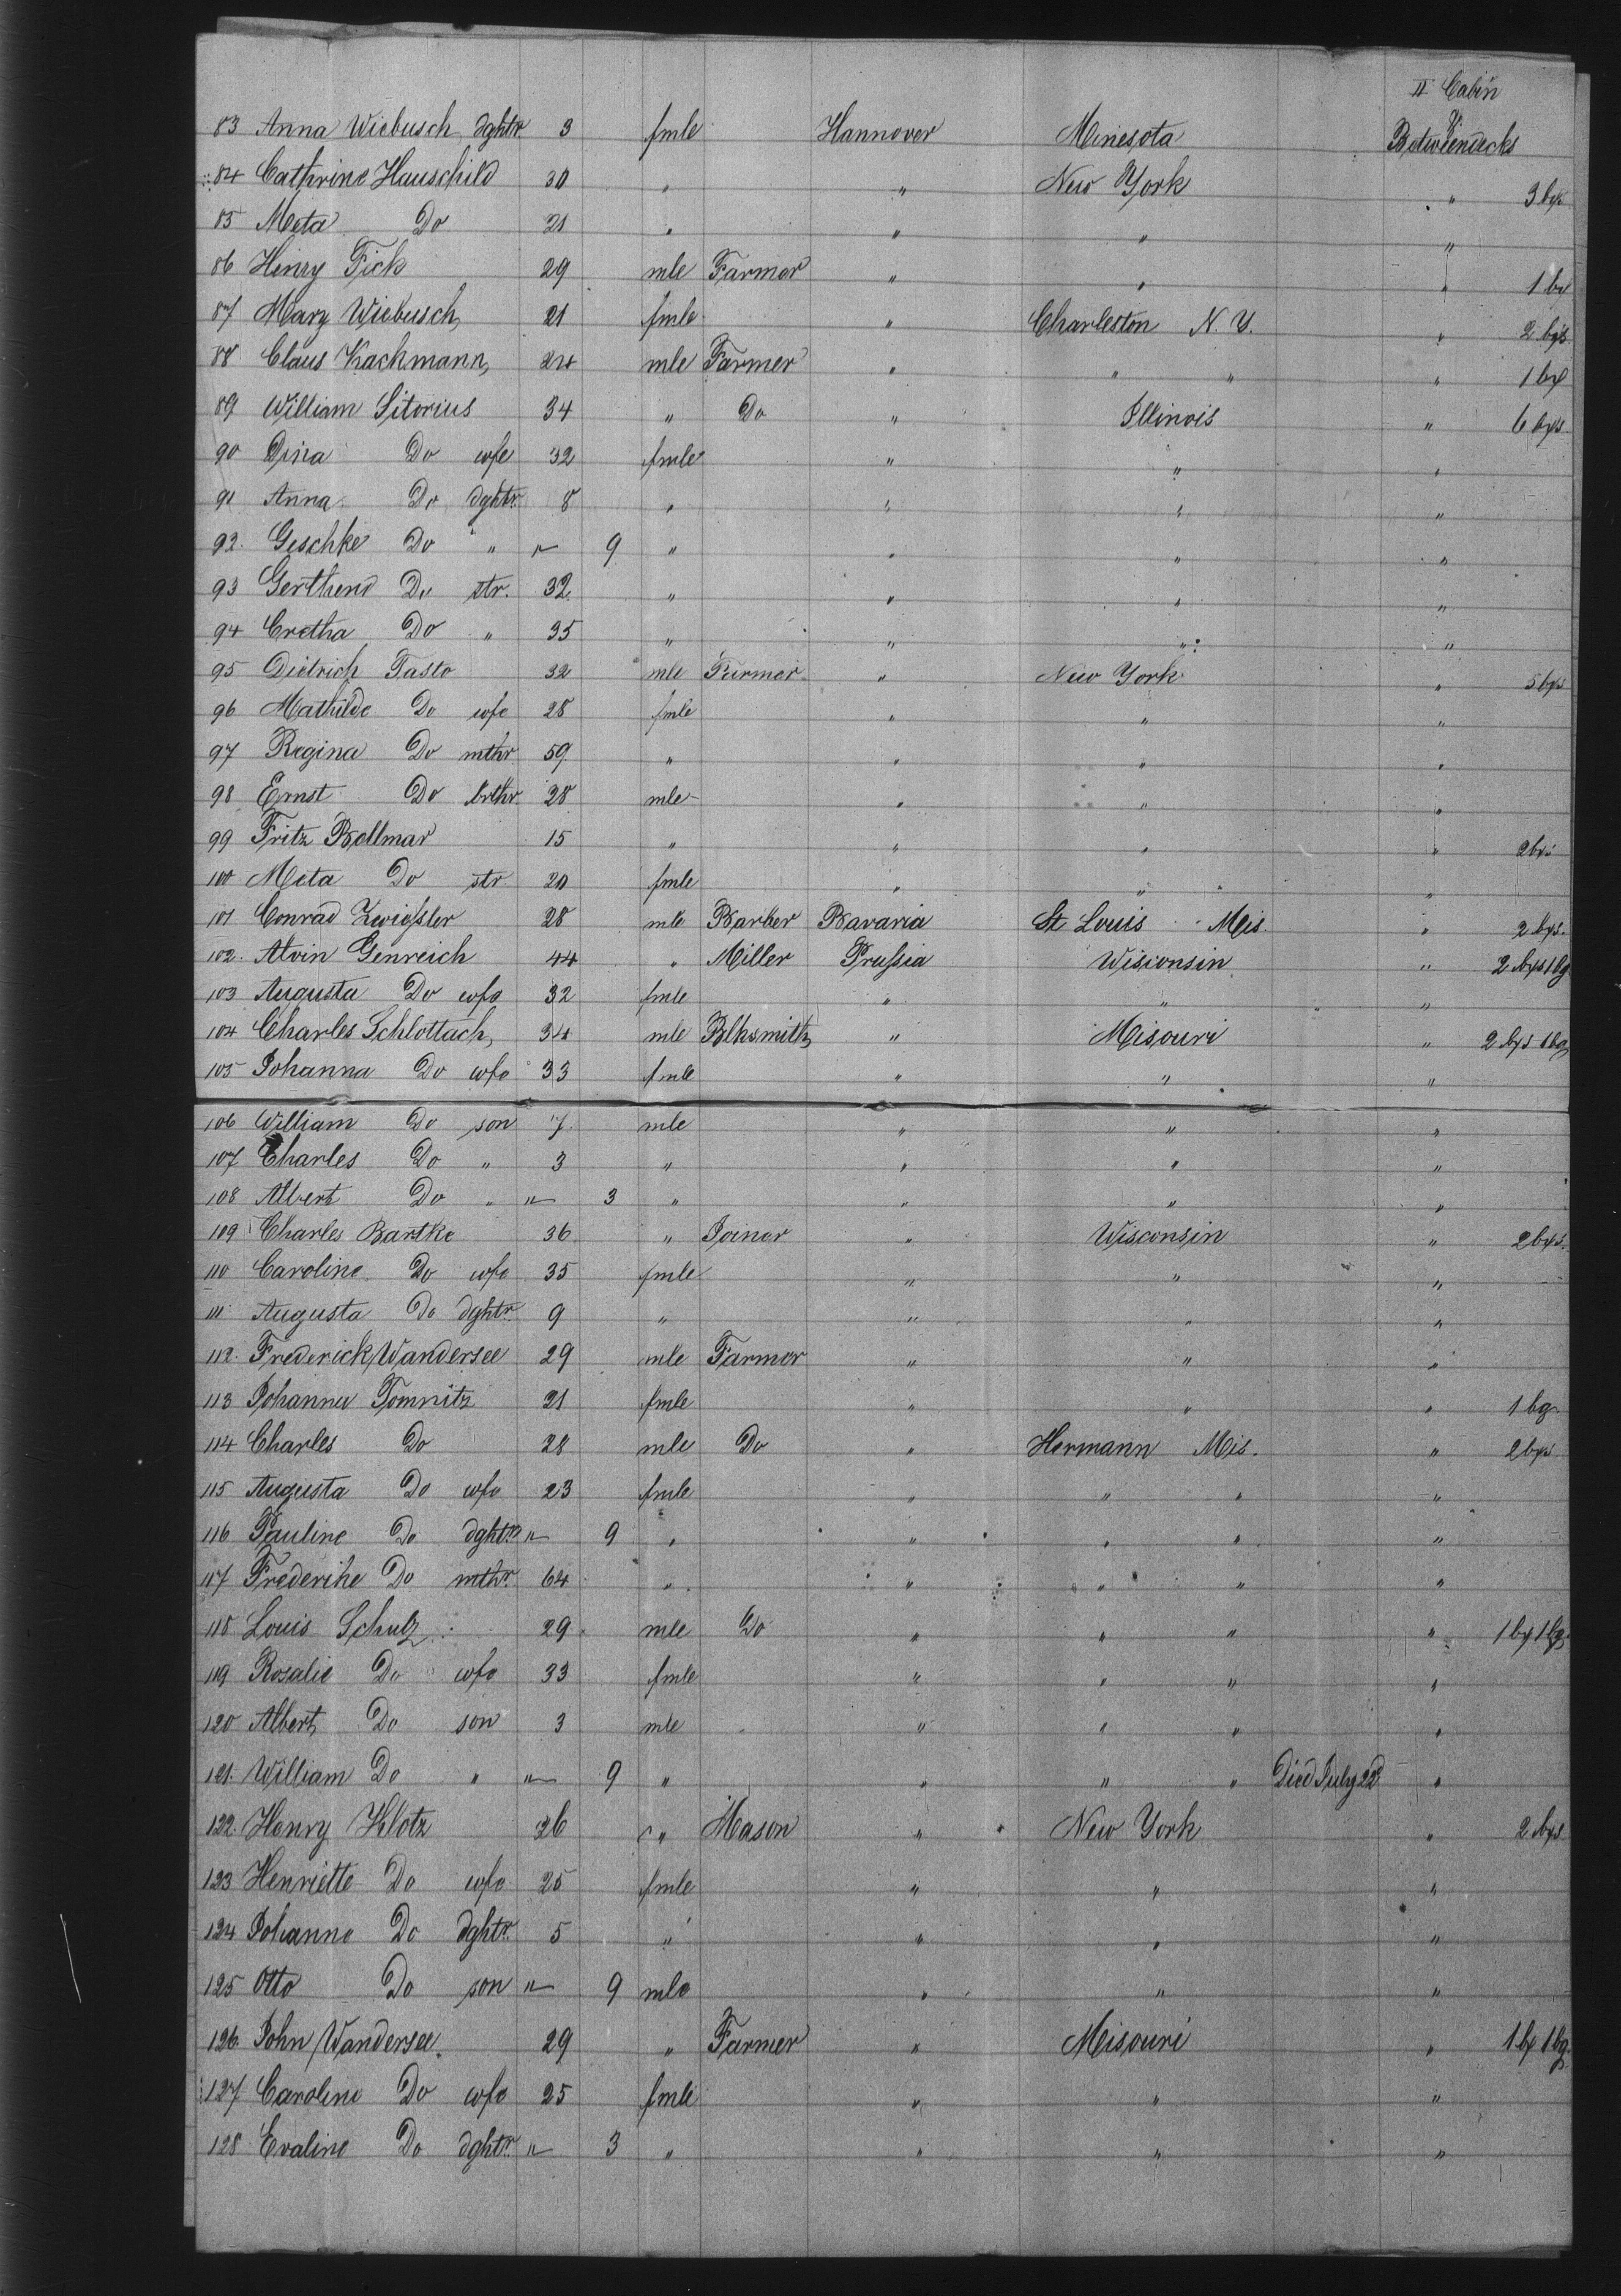 II Cabin
83 Anna Wiebusch dghtr. 3 fmle Hannover Minesota Betwiendecks
84 Cathrine Hauschild 30 " " New York " 3 bxs
85 Meta Do 21 " " " "
86 Henry Fick 29 mle Farmer " " " 1 bx
87 Mary Wiebusch, 21 fmle " Charleston N. Y. " 2 bxs
88 Claus Kackmann, 24 mle Farmer " " " " 1 bx
89 William Sitorius 34 " Do " Illinois " 6 bxs
90 Dina Do wfe 32 fmle " " "
91 Anna Do dghtr. 8 " " " "
92. Geschke Do " " 9 " " " "
93 Do str. 32 " " " "
94 Cretha Do " 35 " " " "
95 Dietrich Tasto 32 mle Farmer " New York " 5 bxs
96 Mathilde Do wfe 28 fmle " " "
97 Regina Do mthr. 59 " " " "
98 Ernst Do brthr. 28 mle " " "
99 Fritz Bollmar 15 " " " " 2 bxs
100 Meta Do str. 20 fmle " " "
101 Conrad Zwiessler 28 mle Barber Bavaria St Louis Mis. " 2 bxs.
102. Alvin Genreich 44 " Miller Prussia Wisionsin " 2 bxs 1 bg
103 Augusta Do wfe 32 fmle " " "
104 Charles Schlottach, 34 mle Blksmith " Misouri " 2 bxs 1 bg
105 Johanna Do wfe 33 fmle " " "
106 William Do son 7. mle " " "
107 Charles Do " 3 " " " "
108 Albert Do " " 3 " " " "
109 Charles Bartke 36 " Joiner " Wisconsin " 2 bxs.
110 Caroline Do wfe 35 fmle " " "
111 Augusta Do dghtr. 9 " " " "
112. Frederick Wandersee 29 mle Farmer " " "
113 Johanna Tomnitz 21 fmle " " " 1 bg.
114 Charles Do 28 mle Do " Hermann Mis. " 2 bxs
115 Augusta Do wfe 23 fmle " " " "
116 Pauline Do dghtr. " 9 " " " " "
117 Frederike Do mthr. 64 " " " " "
118 Louis Schulz 29 mle Do " " " " 1 bx 1 bg.
119 Rosalie Do wfe 33 fmle " " " "
120 Albert Do son 3 mle " " " "
121. William Do " " 9 " " " " Died July 22d "
122. Henry Klotz 36 " Mason " New York " 2 bxs
123 Henriette Do wfe 25 fmle " " "
124 Johanne Do dghtr. 5 " " " "
125 Otto Do son " 9 mle " " "
126. John Wandersee. 29 " Farmer " Misouri " 1 bx 1 bg.
127 Caroline Do wfe 25 fmle " " "
128 Evaline Do dghtr. " 3 " " " "